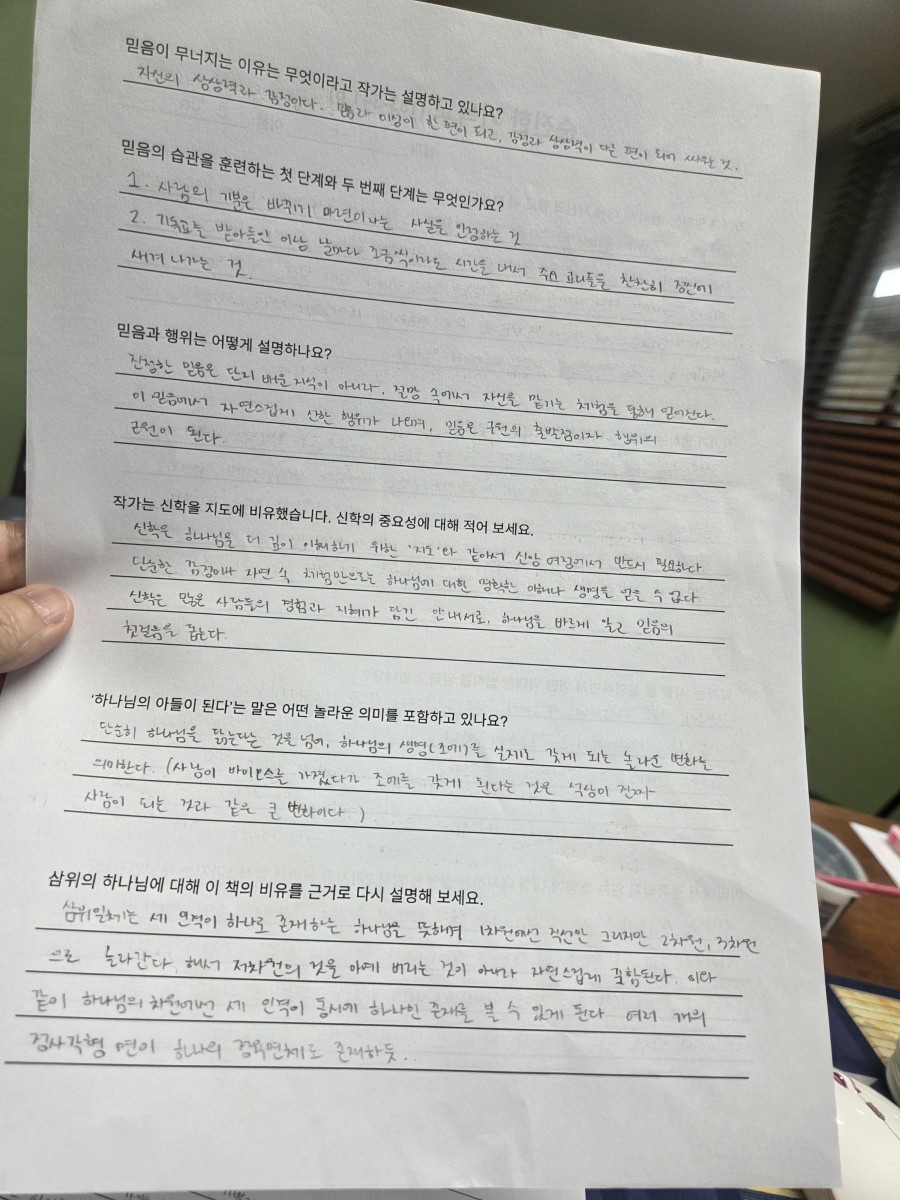 믿음이 무너지는 이유는 무엇이라고 작가는 설명하고 있나요?
자신의 상상력과 감정이다. 믿음과 이성이 한 편이 되고, 감정과 상상력이 다른 편이 되어 싸우는 것.
믿음의 습관을 훈련하는 첫 단계와 두 번째 단계는 무엇인가요?
1. 사람의 기분은 바뀌기 마련이라는 사실을 인정하는 것
2. 기독교를 받아들인 이상 날마다 조금씩이라도 시간을 내서 주요 교리들을 찬찬히 정신에
새겨 나가는 것.
믿음과 행위는 어떻게 설명하나요?
진정한 믿음은 단지 배운 지식이 아니라, 절망 속에서 자신을 맡기는 체험을 통해 얻어진다.
이 믿음에서 자연스럽게 선한 행위가 나오며, 믿음은 구원의 출발점이자 행위의
근원이 된다.
작가는 신학을 지도에 비유했습니다. 신학의 중요성에 대해 적어 보세요.
신학은 하나님을 더 깊이 이해하기 위한 '지도'와 같아서 신앙 여정에서 반드시 필요하다.
단순한 감정이나 자연 속 체험만으로는 하나님에 대한 명확한 이해나 생명을 얻을 수 없다.
신학은 많은 사람들의 경험과 지혜가 담긴 안내서로, 하나님을 바르게 알고 믿음의
첫걸음을 돕는다.
'하나님의 아들이 된다'는 말은 어떤 놀라운 의미를 포함하고 있나요?
단순히 하나님을 닮는다는 것을 넘어, 하나님의 생명(조에)를 실제로 갖게 되는 놀라운 변화를
의미한다. (사람이 바이오스를 가졌다가 조에를 갖게 된다는 것은 석상이 진짜
사람이 되는 것과 같은 큰 변화이다.)
삼위의 하나님에 대해 이 책의 비유를 근거로 다시 설명해 보세요.
삼위일체는 세 인격이 하나로 존재하는 하나님을 뜻하며 1차원에선 직선만 그리지만 2차원, 3차원
으로 올라간다 해서 저차원의 것을 아예 버리는 것이 아니라 자연스럽게 포함된다. 이와
같이 하나님의 차원에선 세 인격이 동시에 하나인 존재를 볼 수 있게 된다. 여러 개의
정사각형 면이 하나의 정육면체로 존재하듯..